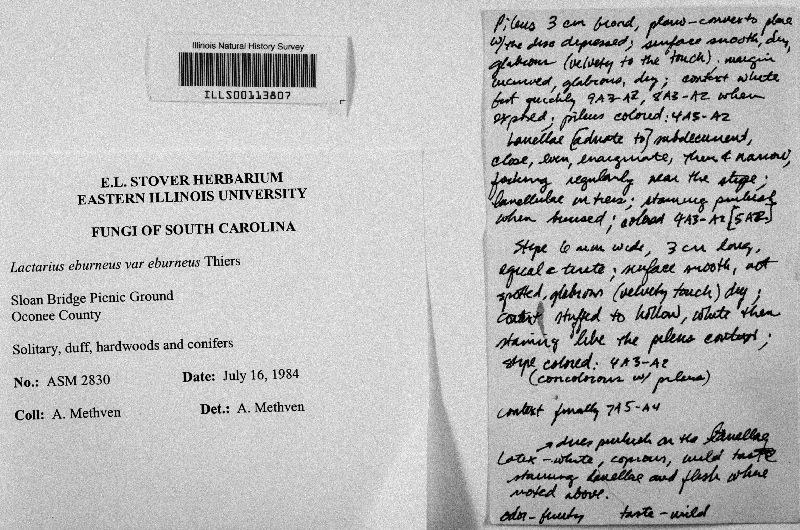 Illinois Natural History Survey
ILLS00113807
E.L. STOVER HERBARIUM
EASTERN ILLINOIS UNIVERSITY
FUNGI OF SOUTH CAROLINA
Lactarius eburneus var eburneus Thiers
Sloan Bridge Picnic Ground
Oconee County
Solitary, duff, hardwoods and conifers
No.: ASM 2830 Date: July 16, 1984
Coll: A. Methven Det.: A. Methven
Pileus 3 cm broad, plano-convex to plane
w/the disc depressed; surface smooth, dry,
glabrous (velvety to the touch), margin
incurved, glabrous, dry; context white
but quickly 9A3-A2, 8A3-A2 when
exposed; pileus colored: 4A3-A2
Lamellae [adnate to] subdecurrent,
close, even, emarginate, thin & narrow,
forking regularly near the stipe;
lamellulae in tiers; staining pinkish
when bruised; colored 4A3-A2 [5A2]
Stipe 6 mm wide, 3 cm long,
equal & terete; surface smooth, not
spotted, glabrous (velvety touch) dry;
context stuffed to hollow, white then
staining like the pileus context;
stipe colored: 4A3-A2
(concolorous w/ pileus)
context finally 7A5-A4
dries pinkish on the lamellae
Latex - white, copious, mild taste
staining lamellae and flesh where
noted above.
odor - fruity taste - mild